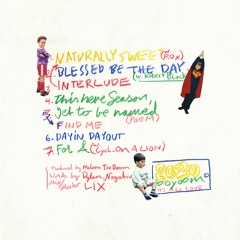 1. NATURALLY SWEET (Rox)
2. BLESSED BE THE DAY
(w. Robert Black)
INTERLUDE
4. this here Season
5. yet to be named
(POEM)
FIND ME
6. DAYIN DAYOUT
7. For & (w. Cyci.. On A LION)
Produced by Malcom The Boom
Words by Dylan Negativ
Mix/Master LIX
2020
boyoom
IT'S ALL LOVE